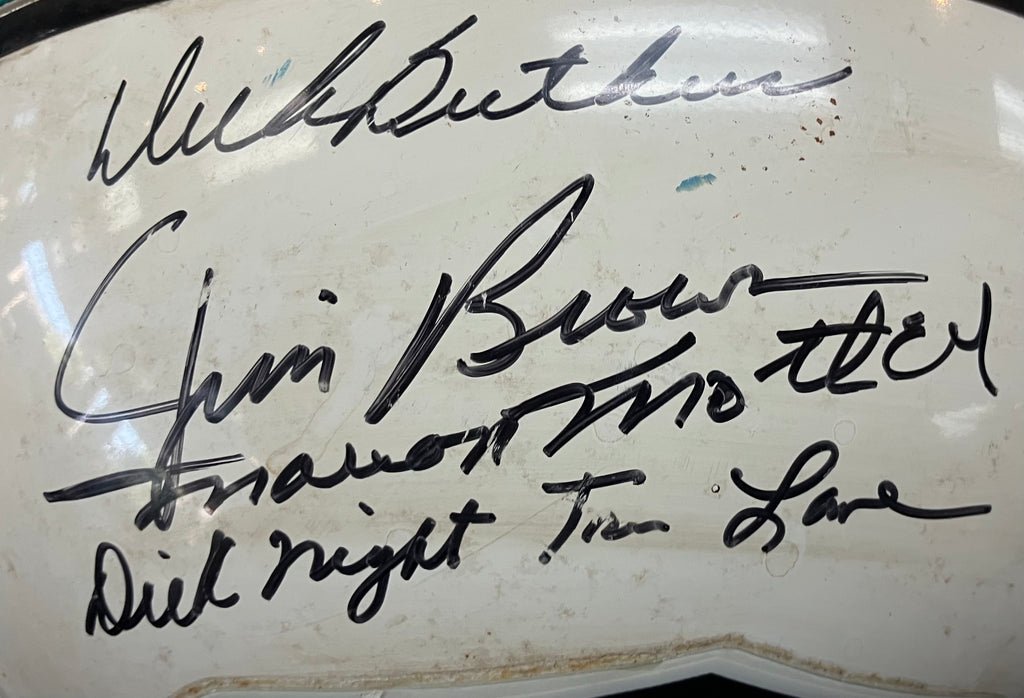 Dick Butkus
Jim Brown
Marion Motley
Dick Night Train Lane